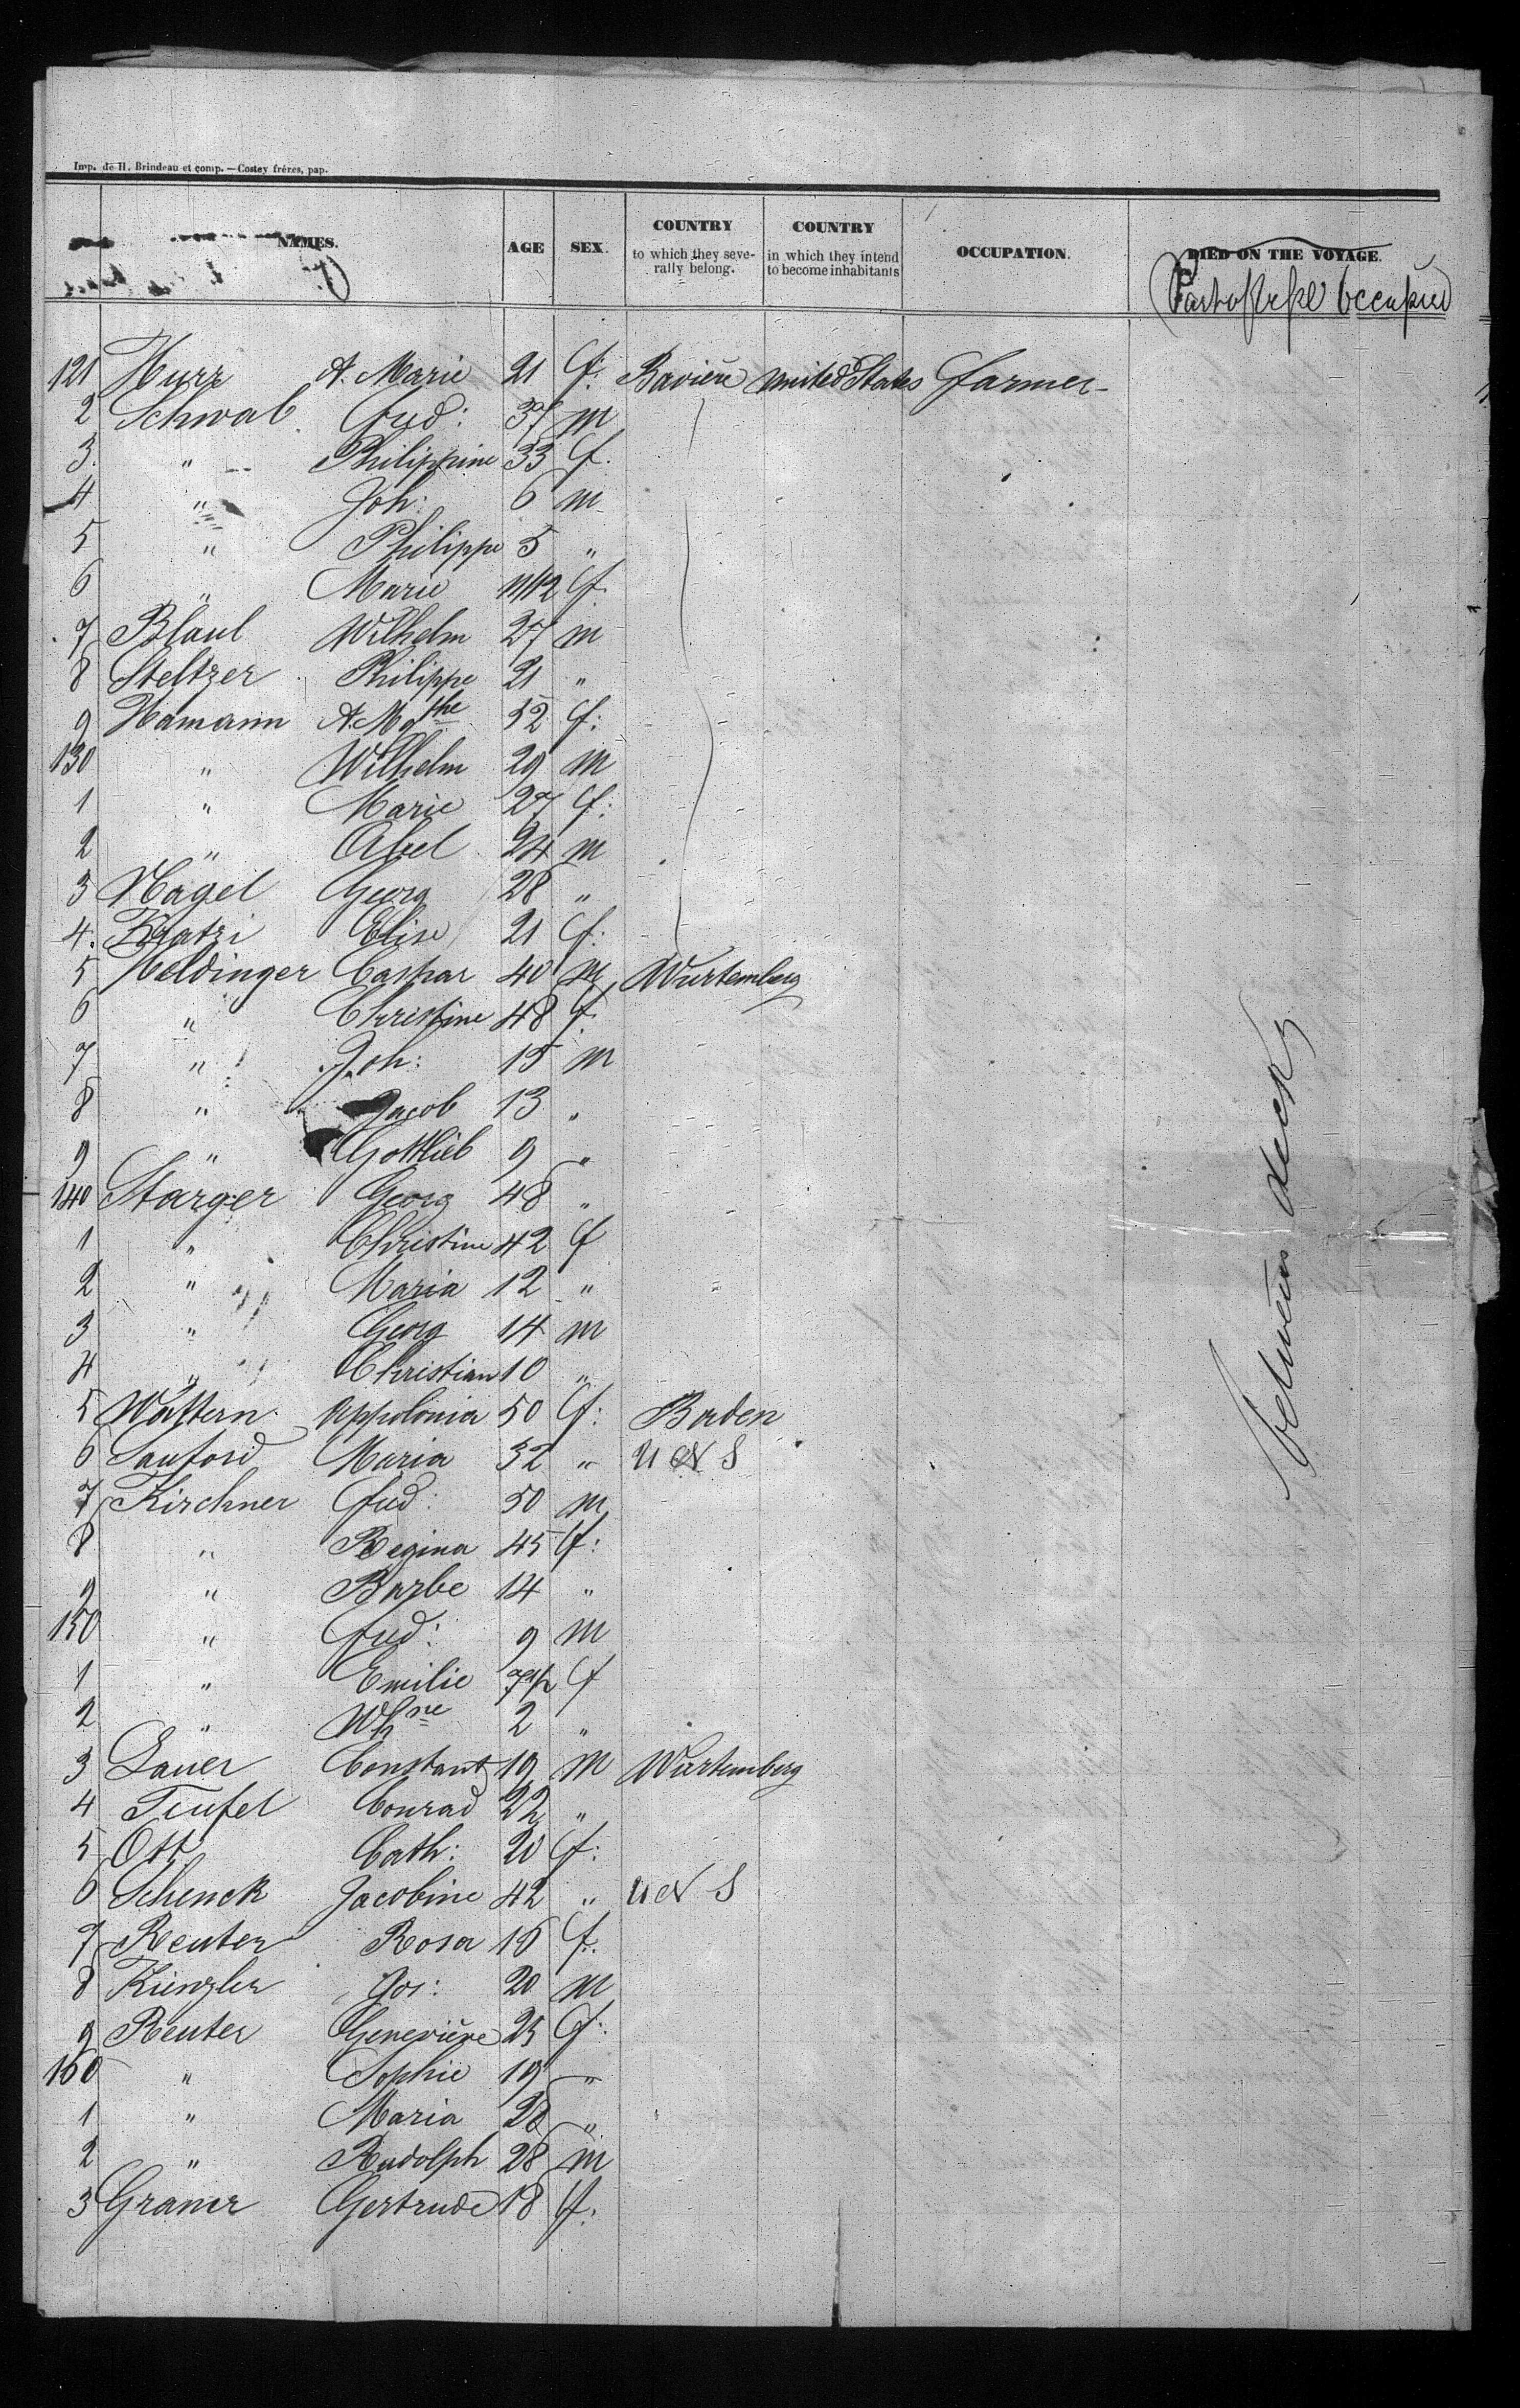 Imp. de H. Brindeau et comp. — Costey frères, pap.
NAMES. AGE SEX. COUNTRY to which they severally belong. COUNTRY in which they intend to become inhabitants OCCUPATION. DIED ON THE VOYAGE.
Part of vessel occupied
121 Hurz A. Marie 21 f: Bavière United States farmer
2 Schwab fred: 37 m
3. " Philippine 33 f.
4 " Joh: 6 m
5 " Philippe 5 "
6 " Marie 11/12 f.
7 Blaul Wilhelm 27 m
8 Steltzer Philippe 21 "
9 Hamann A. Mgthe 52 f:
130 " Wilhelm 29 m
1 " Marie 27 f:
2 " Abel 24 m
3 Nagel Georg 28 "
4. Kratzi Elise 21 f:
5 Heldinger Caspar 40 m Wurtemberg
6 " Christine 48 f.
7 " Joh: 15 m
8 " Jacob 13 "
9 " Gottlieb 9 "
140 Starger Georg 48 "
1 " Christine 42 f
2 " Maria 12 "
3 " Georg 14 m
4 " Christian 10 "
5 Wattern Appolonia 50 f: Baden
6 Sanford Maria 32 " U S
7 Kirchner fred: 50 m
8 " Regina 45 f:
9 " Barbe 14 "
150 " fred: 9 m
1 " Emilie 7 1/2 f
2 " Whne 2 "
3 Lauer Constant 19 m Wurtemberg
4 Teufel Conrad 22 "
5 Ott Cath: 20 f:
6 Schenck Jacobine 42 " U S
7 Reuter Rosa 16 f.
8 Kienzler Jos: 20 m
9 Reuter Geneviève 25 f:
160 " Sophie 19 "
1 " Maria 28 "
2 " Rudolph 28 m
3 Graner Gertrude 18 f:
between decks